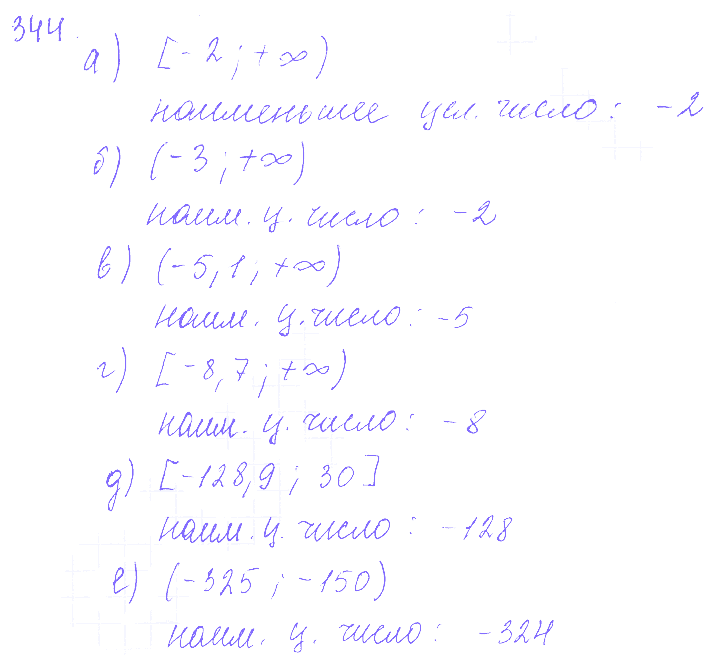 344.
а) [-2; +∞)
наименьшее цел. число: -2
б) (-3; +∞)
наим. ц. число: -2
в) (-5,1; +∞)
наим. ц. число: -5
г) [-8,7; +∞)
наим. ц. число: -8
д) [-128,9; 30]
наим. ц. число: -128
е) (-325; -150)
наим. ц. число: -324